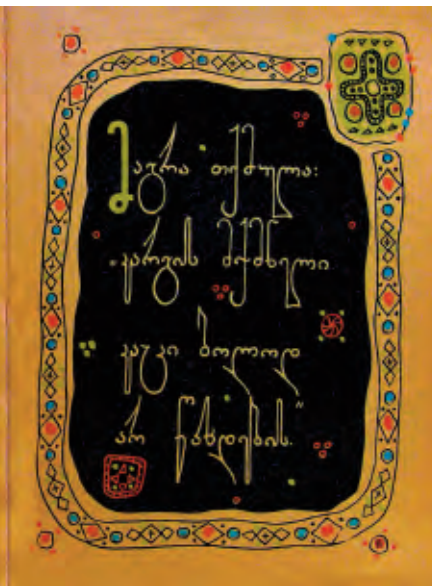 მაგრა თქმულა:
„კარგის მქმნელი
კაცი ბოლოდ
არ წახდების.“